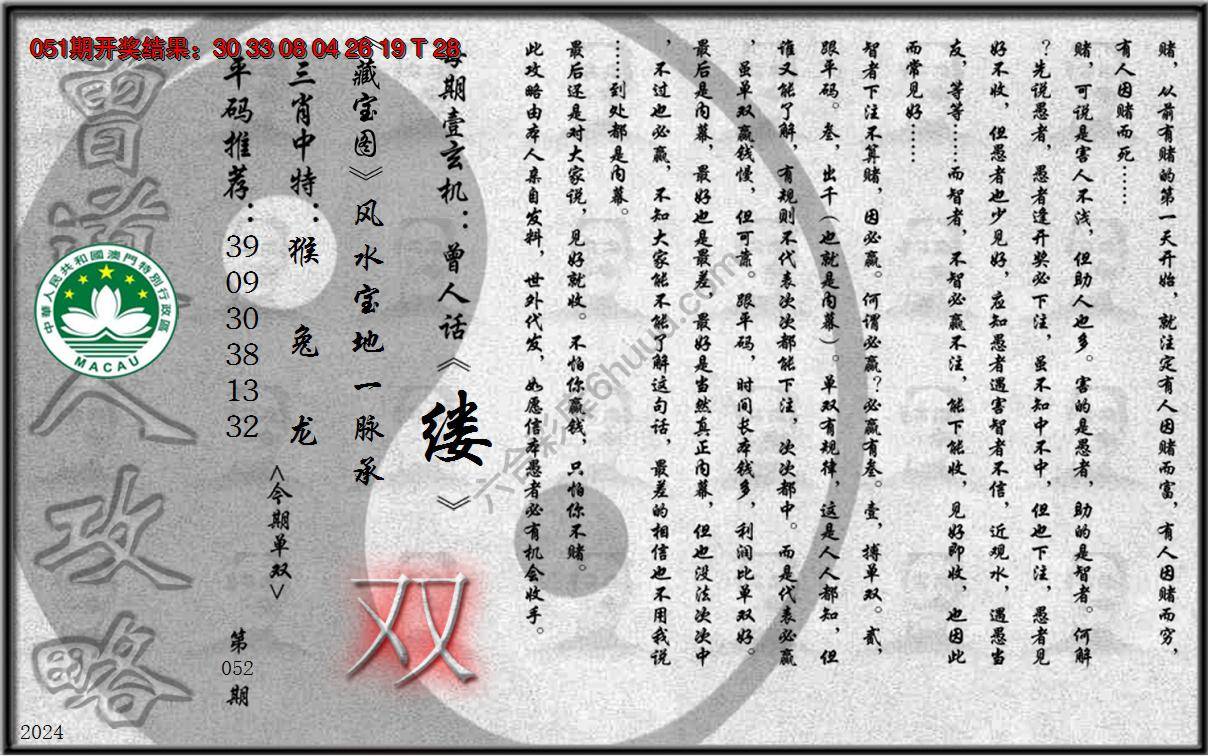 051期开奖结果：30 33 08 04 26 19 T 28
赌，从前有赌的第一天开始，就注定有人因赌而富，有人因赌而穷，
有人因赌而死……
赌，可说是害人不浅，但助人也多。害的是愚者，助的是智者。何解
？先说愚者，愚者逢开奖必下注，虽不知中不中，但也下注，愚者见
好不收，但愚者也少见好，应知愚者遇害智者不信，近观水，遇愚当
友，等等……而智者，不智必赢不注，能下能收，见好即收，也因此
而常见好……
智者下注不算赌，因必赢。何谓必赢？必赢有叁。壹，搏单双。贰，
跟平码。叁，出千（也就是内幕）。单双有规律，这是人人都知，但
谁又能了解，有规则不代表次次都能下注，次次都中。而是代表必赢
，虽单双赢钱慢，但可靠。跟平码，时间长本钱多，利润比单双好。
最后是内幕，最好也是最差，最好是当然真正内幕，但也没法次次中
，不过也必赢，不知大家能不能了解这句话，最差的相信也不用我说
……到处都是内幕。
最后还是对大家说，见好就收。不怕你赢钱，只怕你不赌。
此攻略由本人亲自发料，世外代发，如愿信本愚者必有机会收手。
每期壹玄机：曾人话《缕》
《藏宝图》风水宝地一脉承
双
三肖中特：猴 兔 龙
<今期单双>
平码推荐：39 09 30 38 13 32
第052期
曾道人攻略
中華人民共和國澳門特別行政區
MACAU
六合彩库6huuu.com
2024